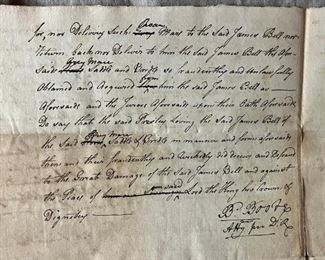 for, nor Delivery Such Chesnut Mare to the Said James Bell nor
Return back nor Deliver to him the said James Bell the afore
Said Grey Mare Saddle and Bridle so fraudulently and unlawfully
Obtained and Acquired from him the said James Bell as
Aforesaid and the Jurors Aforesaid upon their Oath Aforesaid
Do say that the said Presley the Said James Bell of
the said Grey Mare Saddle & Bridle in manner and form aforesaid
then and there fraudulently and Wickedly did and Defraud
to the Great Damage of the Said James Bell and against
the Peace of said Lord the King his Crown &
Dignity
B. Booth
Atty for D. R.